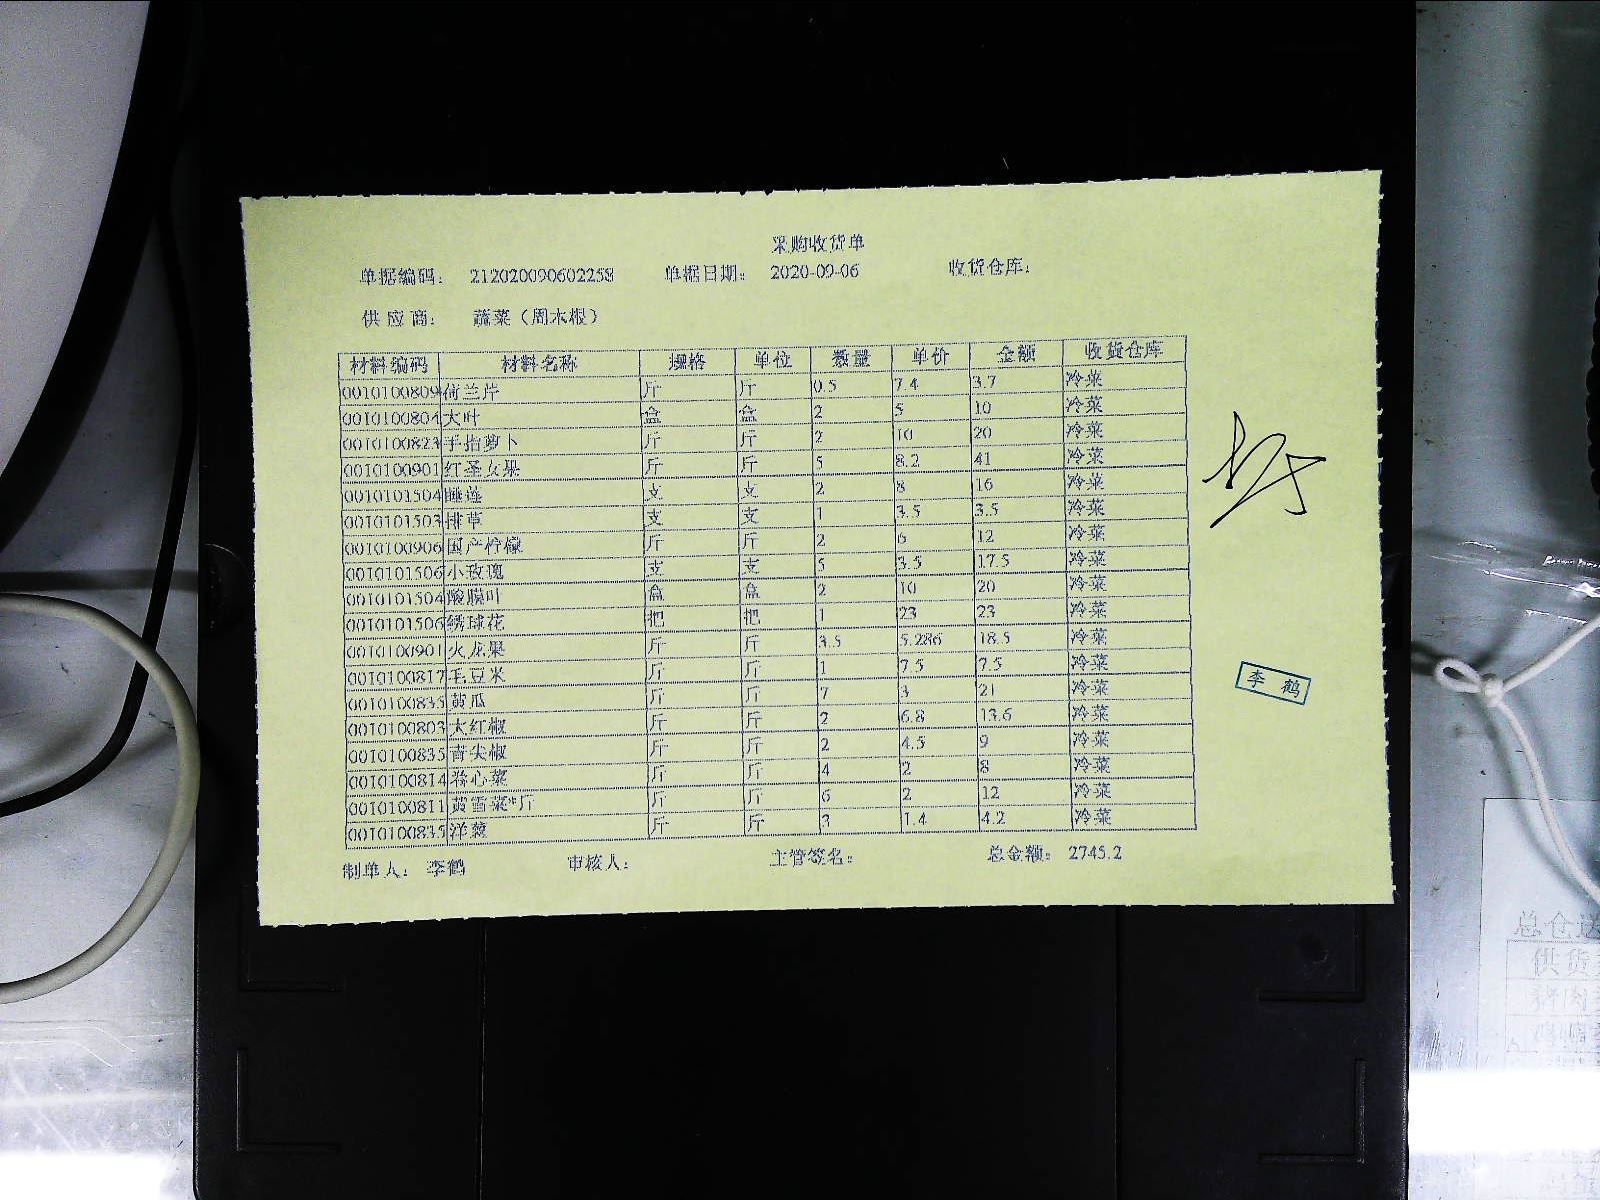 采购收货单
单据编码: 212020090602258 单据日期: 2020-09-06 收货仓库:
供应商: 蔬菜（周末根）
材料编码 材料名称 规格 单位 数量 单价 金额 收货仓库
0010100809 荷兰芹 斤 斤 0.5 7.4 3.7 冷菜
0010100804 大叶 盒 盒 2 5 10 冷菜
0010100823 手指萝卜 斤 斤 2 10 20 冷菜
0010100901 红圣女果 斤 斤 5 8.2 41 冷菜
0010101504 睡莲 支 支 2 8 16 冷菜
0010101503 排草 支 支 1 3.5 3.5 冷菜
0010100906 国产柠檬 斤 斤 2 6 12 冷菜
0010101506 小玫瑰 支 支 5 3.5 17.5 冷菜
0010101504 酸膜叶 盒 盒 2 10 20 冷菜
0010101506 绣球花 把 把 1 23 23 冷菜
0010100901 火龙果 斤 斤 3.5 5.286 18.5 冷菜
0010100817 毛豆米 斤 斤 1 7.5 7.5 冷菜
0010100835 黄瓜 斤 斤 7 3 21 冷菜
0010100803 大红椒 斤 斤 2 6.8 13.6 冷菜
0010100835 青尖椒 斤 斤 2 4.5 9 冷菜
0010100814 卷心菜 斤 斤 4 2 8 冷菜
0010100811 黄雪菜*斤 斤 斤 6 2 12 冷菜
0010100835 洋葱 斤 斤 3 1.4 4.2 冷菜
制单人: 李鹤 审核人: 主管签名: 总金额: 2745.2
李鹤
总仓送
供货